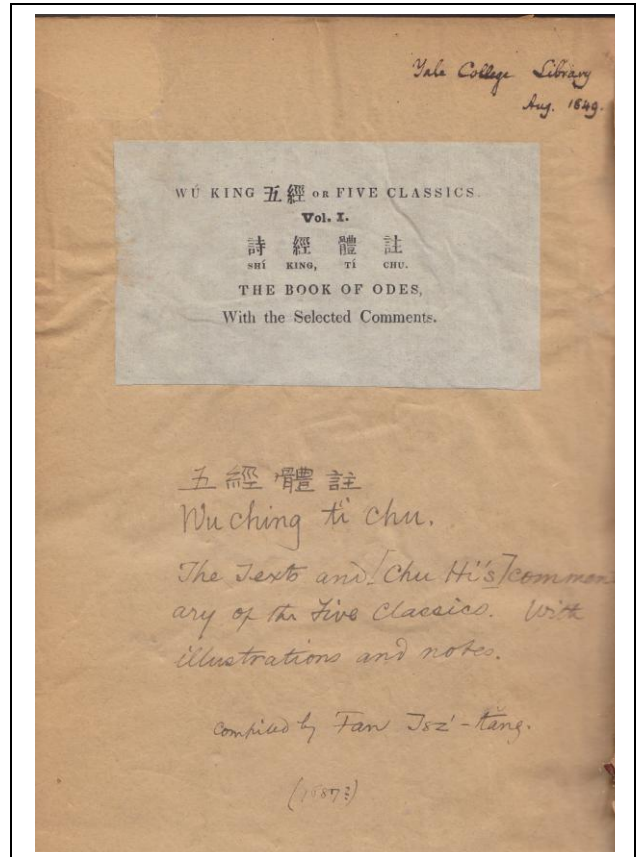 Yale College Library
Aug. 1849.
WÚ KING 五經 OR FIVE CLASSICS.
Vol. I.
詩 經 體 註
SHÍ KING, TÍ CHU.
THE BOOK OF ODES,
With the Selected Comments.
五經體註
Wu ching t'i chu.
The Texts and [Chu Hi's] comment
ary of the Five Classics. With
illustrations and notes.
compiled by Fan Tsz'-tăng.
(1687?)